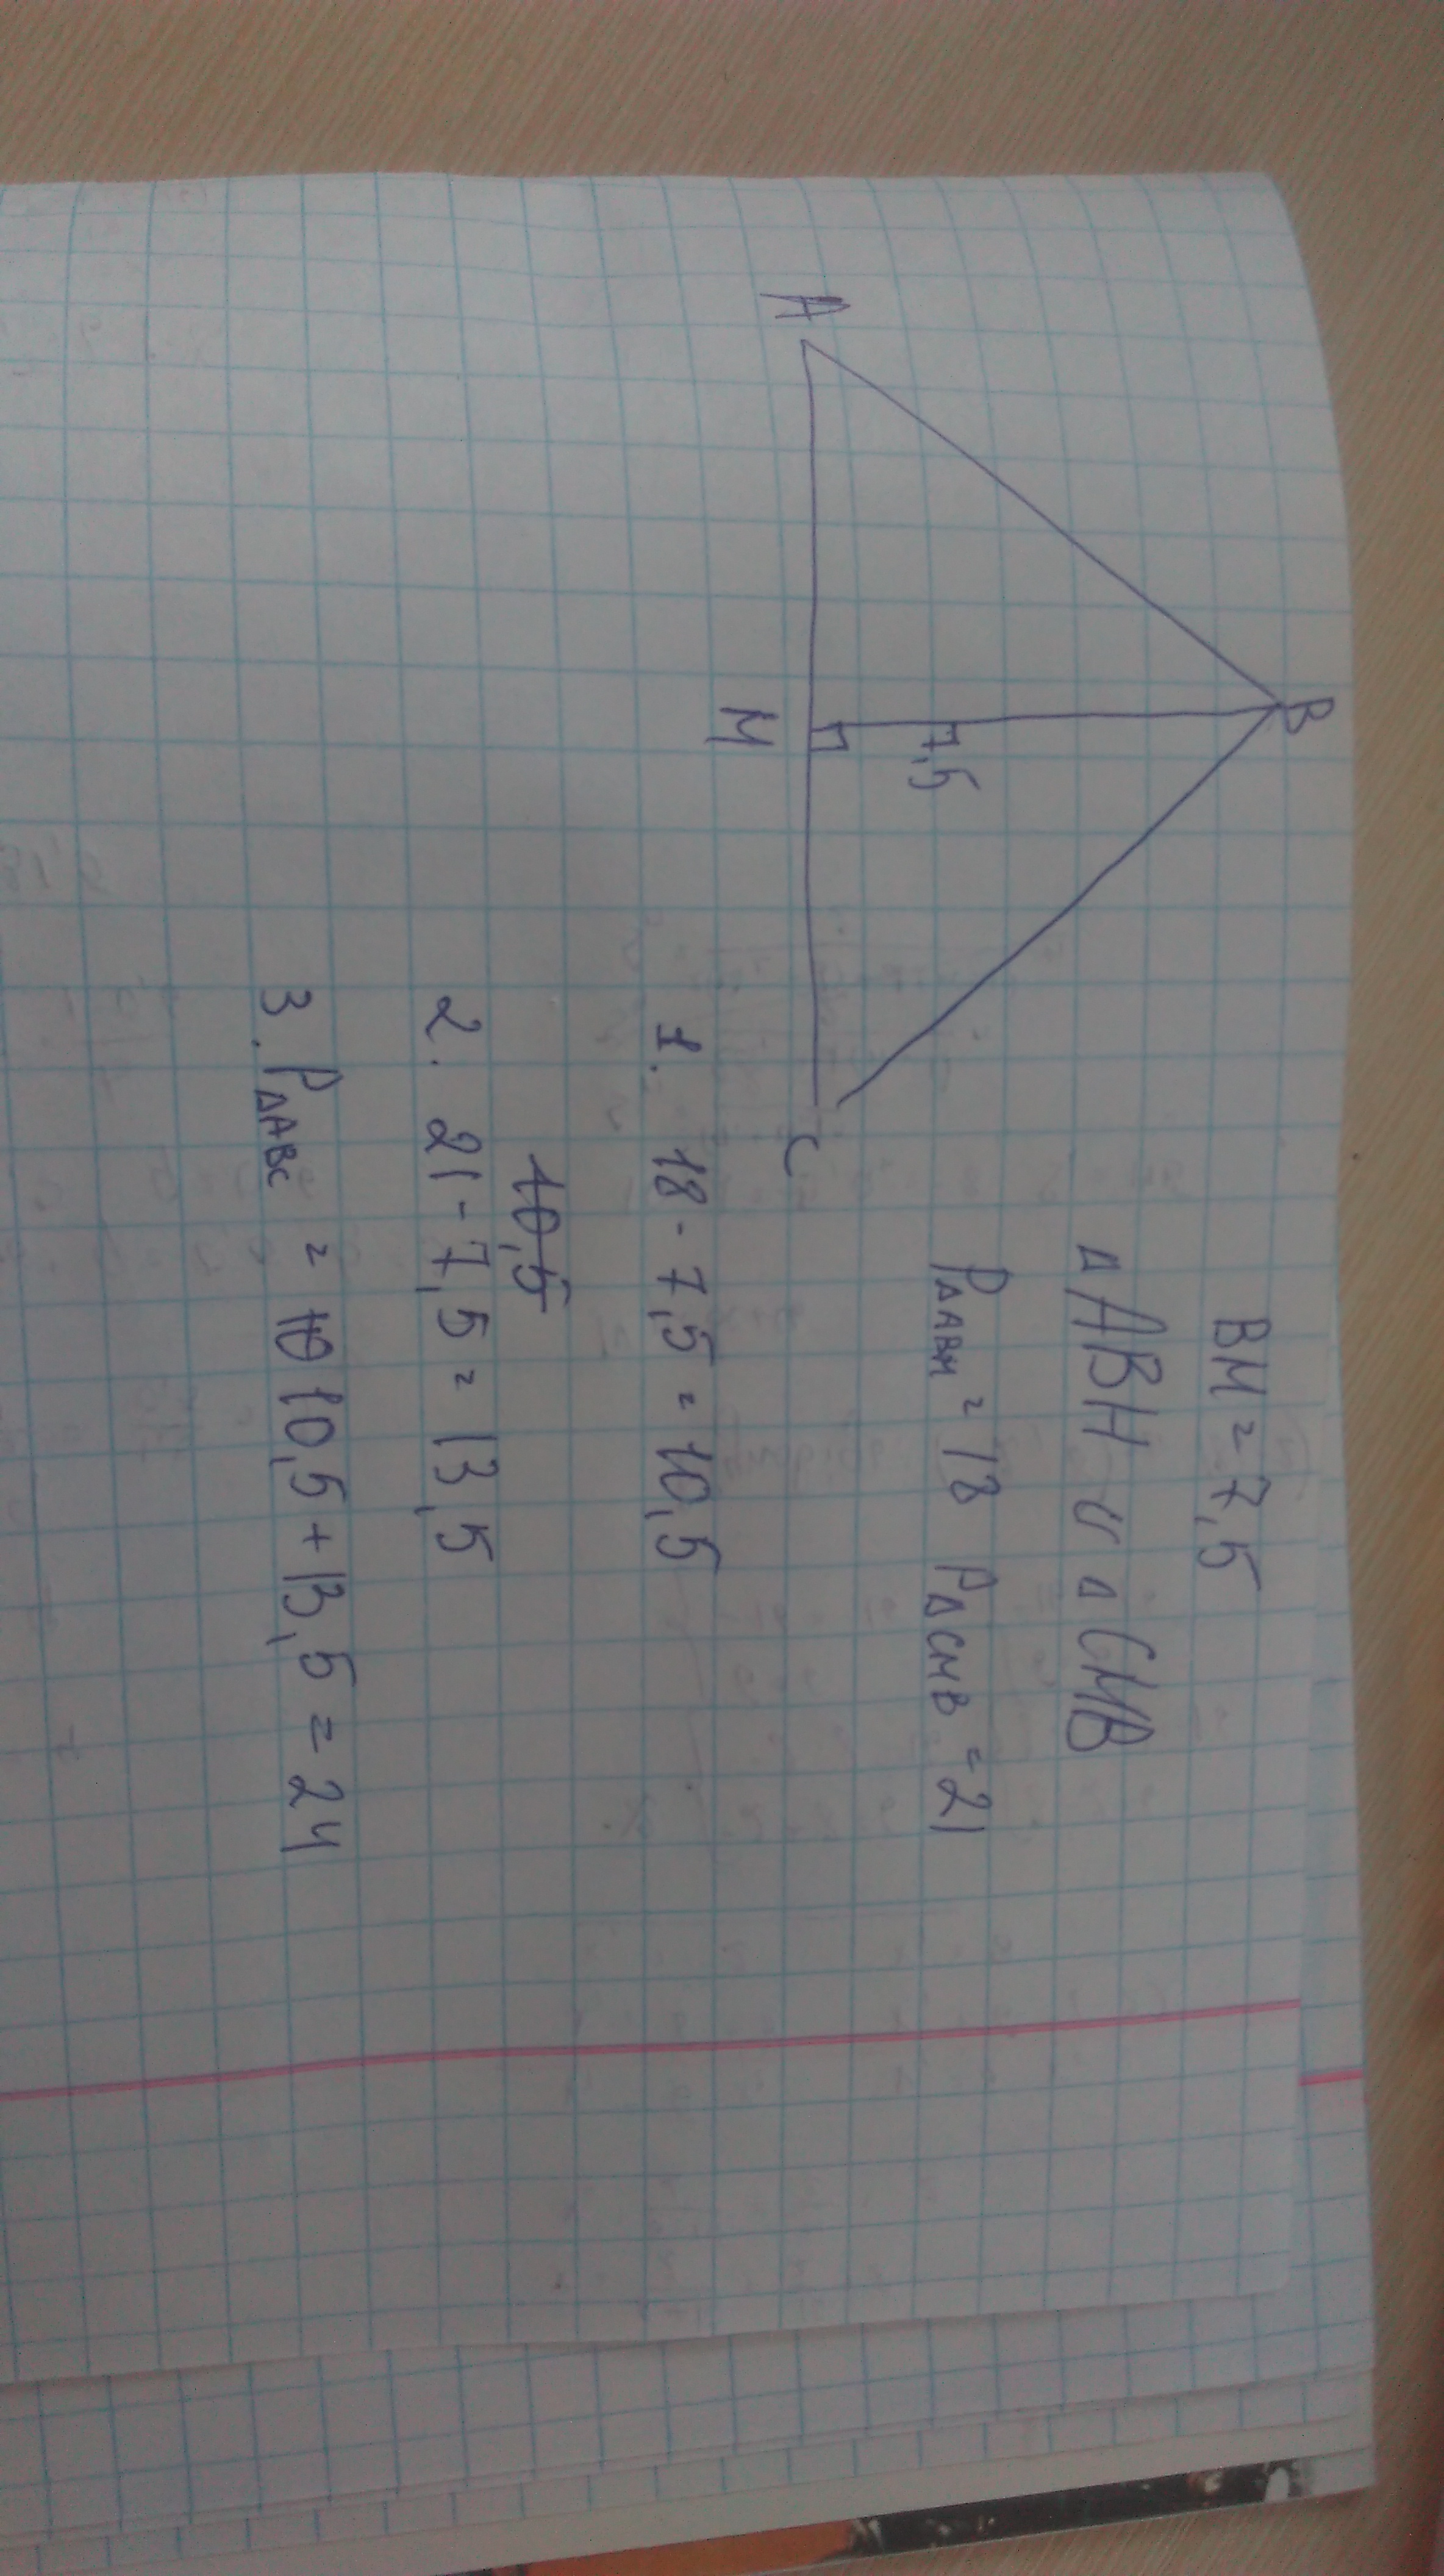 B
A
7,5
M
C
BM = 7,5
△ABH и △CMB
P△ABM = 18 P△CMB = 21
1. 18 - 7,5 = 10,5
10,5
2. 21 - 7,5 = 13,5
3. P△ABC = 10 10,5 + 13,5 = 24